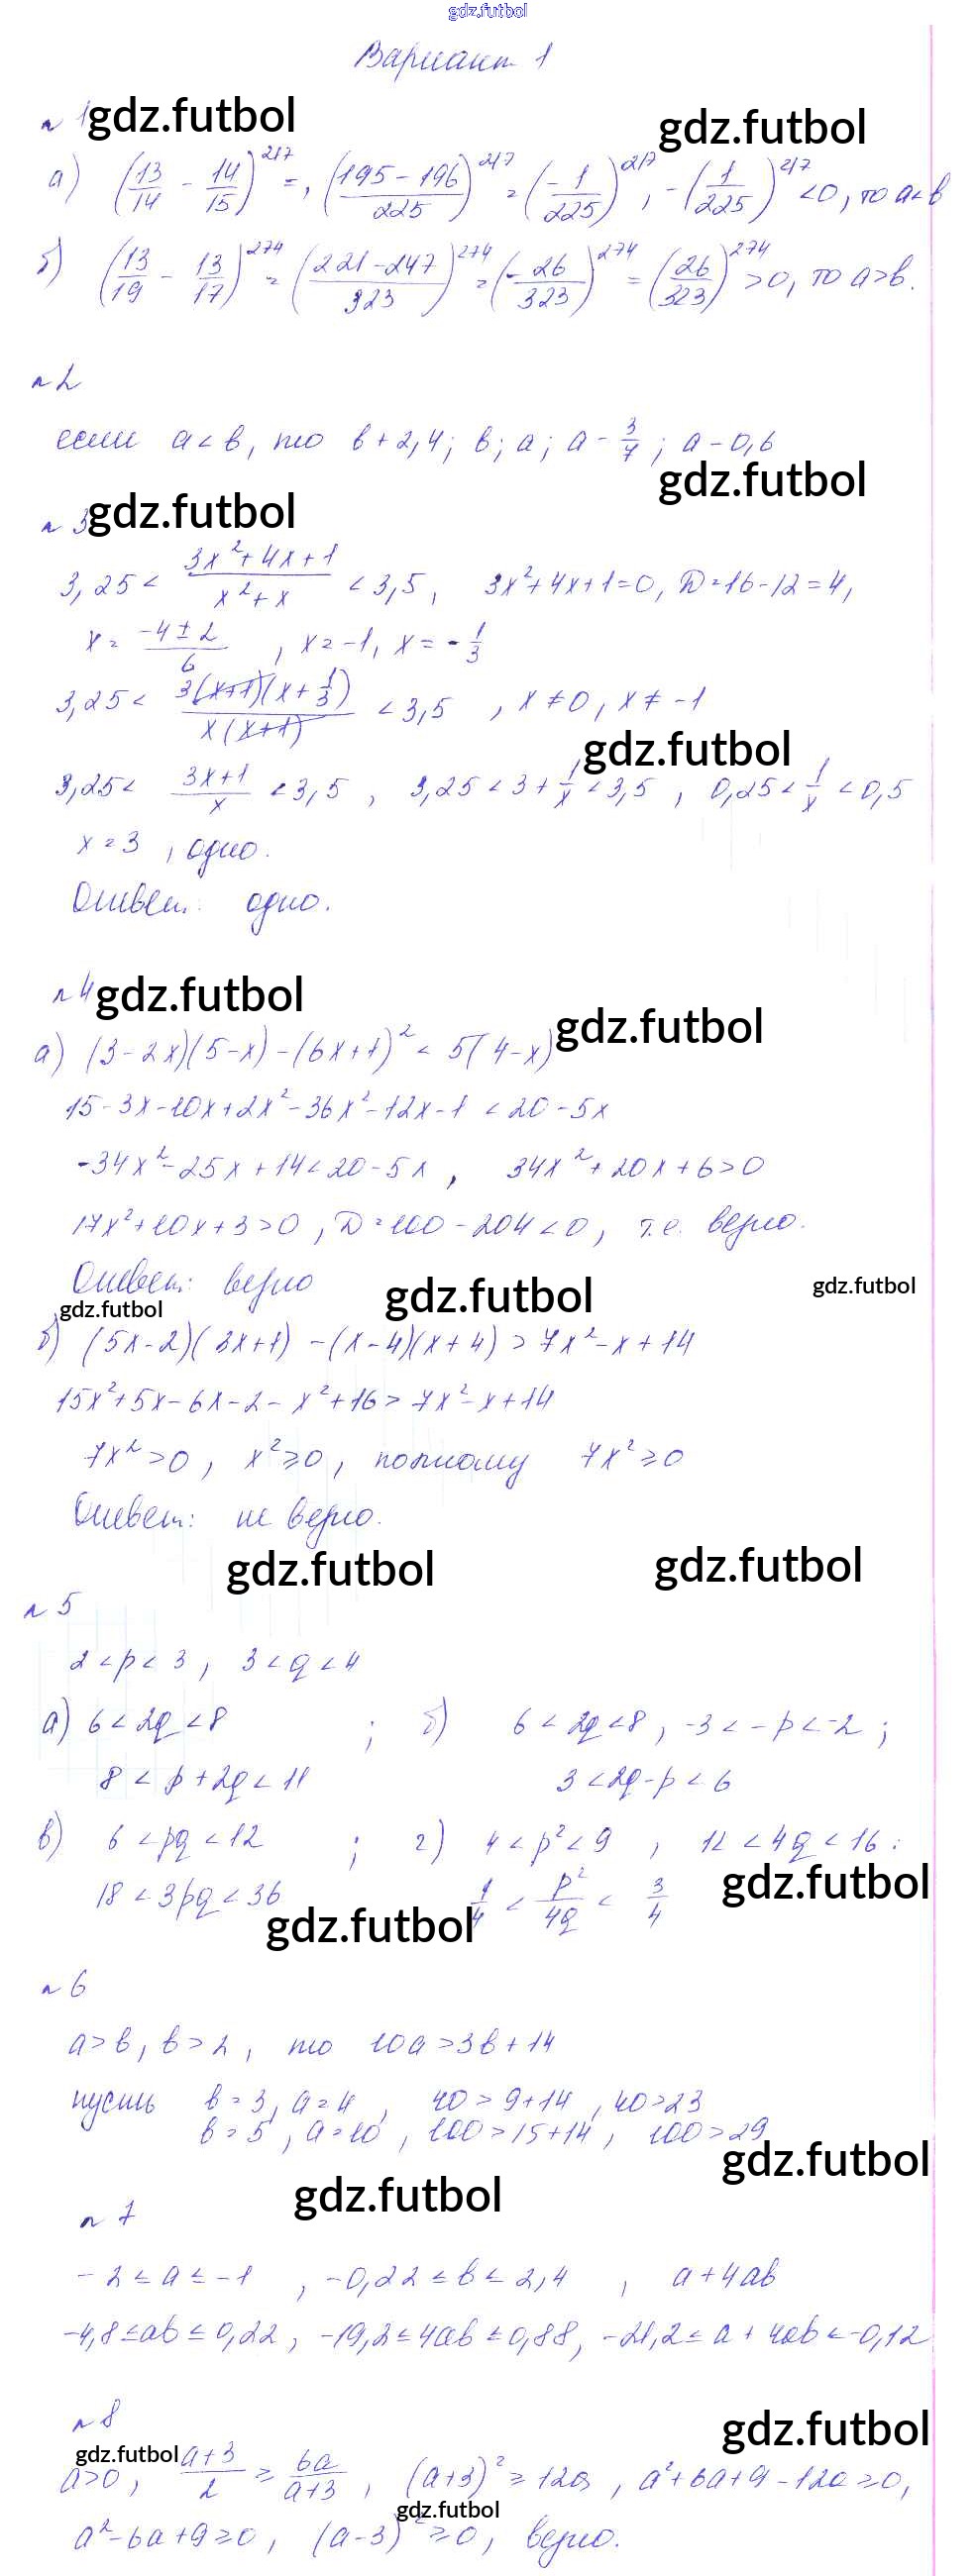 gdz.futbol
Вариант 1
n 1 gdz.futbol gdz.futbol
а) (13/14 - 14/15)^217 =, ((195-196)/225)^217 = (-1/225)^217, -(1/225)^217 <0, то а<в
б) (13/19 - 13/17)^274 = ((221-247)/323)^274 = (-26/323)^274 = (26/323)^274 >0, то а>в.
n 2
если а<в, то в+2,4; в; а; а - 3/7; а-0,6
gdz.futbol
n 3 gdz.futbol
3,25 < (3x²+4x+1)/(x²+x) < 3,5, 3x²+4x+1=0, D=16-12=4,
x = (-4±2)/6, x=-1, x=-1/3
3,25 < 3(x+1)(x+1/3)/(x(x+1)) < 3,5, x≠0, x≠-1
gdz.futbol
3,25 < (3x+1)/x < 3,5, 3,25 < 3+1/x < 3,5, 0,25 < 1/x < 0,5
x=3, одно.
Ответ: одно.
n 4 gdz.futbol
gdz.futbol
а) (3-2x)(5-x)-(6x+1)² < 5(4-x)
15-3x-10x+2x²-36x²-12x-1 < 20-5x
-34x²-25x+14<20-5x, 34x²+20x+6>0
17x²+10x+3>0, D=100-204<0, т.е. верно.
Ответ: верно
gdz.futbol gdz.futbol
gdz.futbol
б) (5x-2)(3x+1)-(x-4)(x+4) > 7x²-x+14
15x²+5x-6x-2-x²+16>7x²-x+14
7x²>0, x²≥0, поэтому 7x²≥0
Ответ: не верно.
gdz.futbol gdz.futbol
n 5
2<p<3, 3<q<4
а) 6<2q<8; б) 6<2q<8, -3<-p<-2;
8<p+2q<11 3<2q-p<6
в) 6<pq<12; г) 4<p²<9, 12<4q<16:
gdz.futbol
18<3pq<36 1/4 < p²/4q < 3/4
gdz.futbol
n 6
а>в, в>2, то 10а>3в+14
пусть в=3, а=4, 40>9+14, 40>23
в=5, а=10, 100>15+14, 100>29
gdz.futbol
gdz.futbol
n 7
-2≤а≤-1, -0,22≤в≤2,4, а+4ав
-4,8≤ав≤0,22, -19,2≤4ав≤0,88, -21,2≤а+4ав≤-0,12
n 8
gdz.futbol
gdz.futbol
а>0, (а+3)/2 ≥ 6а/(а+3), (а+3)²≥12а, а²+6а+9-12а≥0,
gdz.futbol
а²-6а+9≥0, (а-3)²≥0, верно.